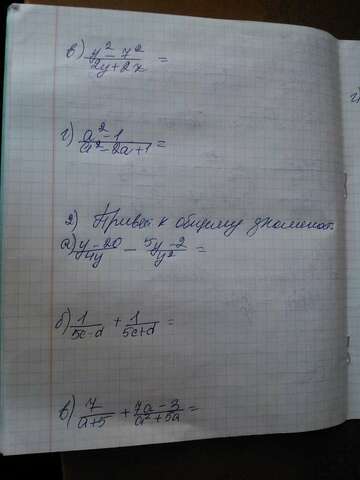 в) y² - z² / 2y + 2z =
г) a² - 1 / a² - 2a + 1 =
2) Привест к общему знаменат.
а) y - 20 / 4y - 5y - 2 / y² =
б) 1 / 5c - d + 1 / 5c + d =
в) 7 / a + 5 + 7a - 3 / a² + 5a =